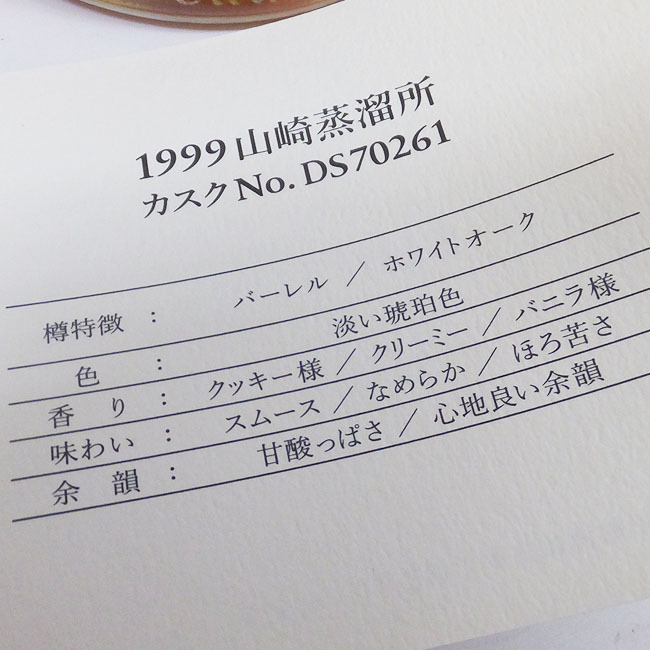 1999 山崎蒸溜所
カスクNo. DS70261
樽特徴 : バーレル / ホワイトオーク
色 : 淡い琥珀色
香り : クッキー様 / クリーミー / バニラ様
味わい : スムース / なめらか / ほろ苦さ
余韻 : 甘酸っぱさ / 心地良い余韻